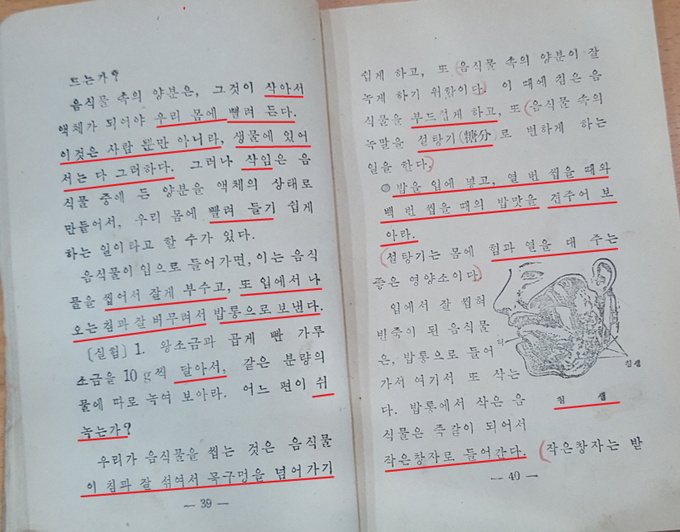 드는가?
음식물 속의 양분은, 그것이 삭아서
액체가 되어야 우리 몸에 빨려 든다.
이것은 사람 뿐만 아니라, 생물에 있어
서는 다 그러하다. 그러나 삭임은 음
식물 중에 든 양분을 액체의 상태로
만들어서, 우리 몸에 빨려 들기 쉽게
하는 일이라고 할 수가 있다.
음식물이 입으로 들어가면, 이는 음식
물을 씹어서 잘게 부수고, 또 입에서 나
오는 침과 잘 버무려서 밥통으로 보낸다.
〔실험〕 1. 왕소금과 곱게 빤 가루
소금을 10 g씩 달아서, 같은 분량의
물에 따로 녹여 보아라. 어느 편이 쉬
녹는가?
우리가 음식물을 씹는 것은 음식물
이 침과 잘 섞여서 목구멍을 넘어가기
— 39 —
쉽게 하고, 또 음식물 속의 양분이 잘
녹게 하기 위함이다. 이 때에 침은 음
식물을 부드럽게 하고, 또 음식물 속의
녹말을 설탕기(糖分)로 변하게 하는
일을 한다.
◎ 밥을 입에 넣고, 열 번 씹을 때와
백 번 씹을 때의 밥맛을 견주어 보
아라.
설탕기는 몸에 힘과 열을 대 주는
좋은 영양소이다.
입에서 잘 씹혀
반죽이 된 음식물
은, 밥통으로 들어
가서 여기서 또 삭는
다. 밥통에서 삭은 음
식물은 죽같이 되어서
작은창자로 들어간다. 작은창자는 받
침샘
침 샘
— 40 —